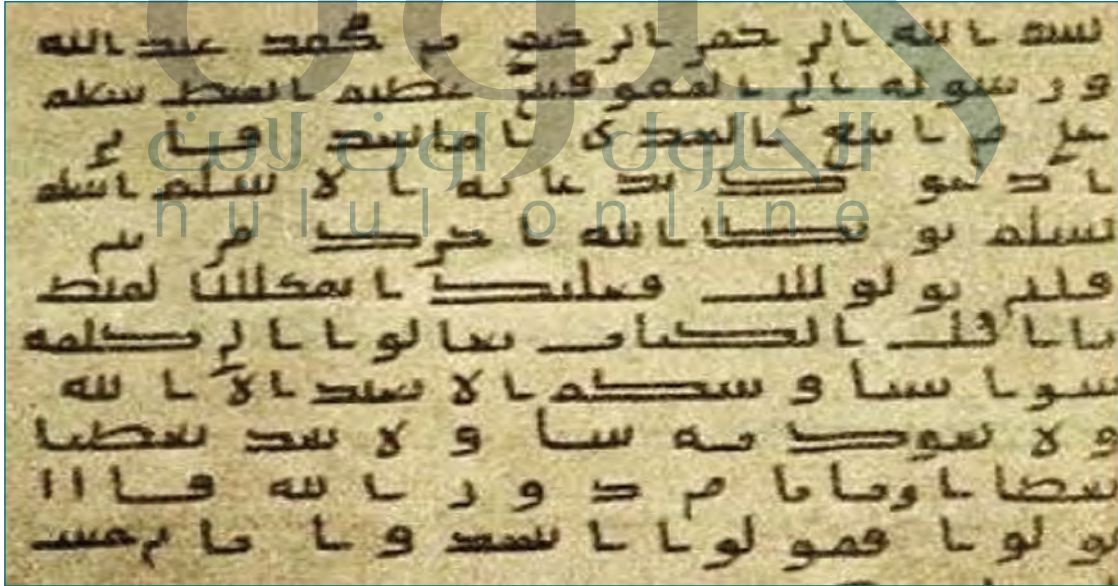 بسم الله الرحمن الرحيم من محمد عبد الله
ورسوله إلى المقوقس عظيم القبط سلم
على من اتبع الهدى أما بعد فإني
أدعوك بدعاية الإسلم أسلم
تسلم يؤتك الله أجرك مرتين
فإن توليت فعليك
الكتاب تعالوا إلى كلمة
سوا بيننا وبينكم ألا نعبد إلا الله
ولا نشرك به شيئا ولا يتخذ بعضنا
بعضا أربابا من دون الله فإن
تولوا فقولوا اشهدوا بأنا مسلمون
الحلول اون لاين
hulul online